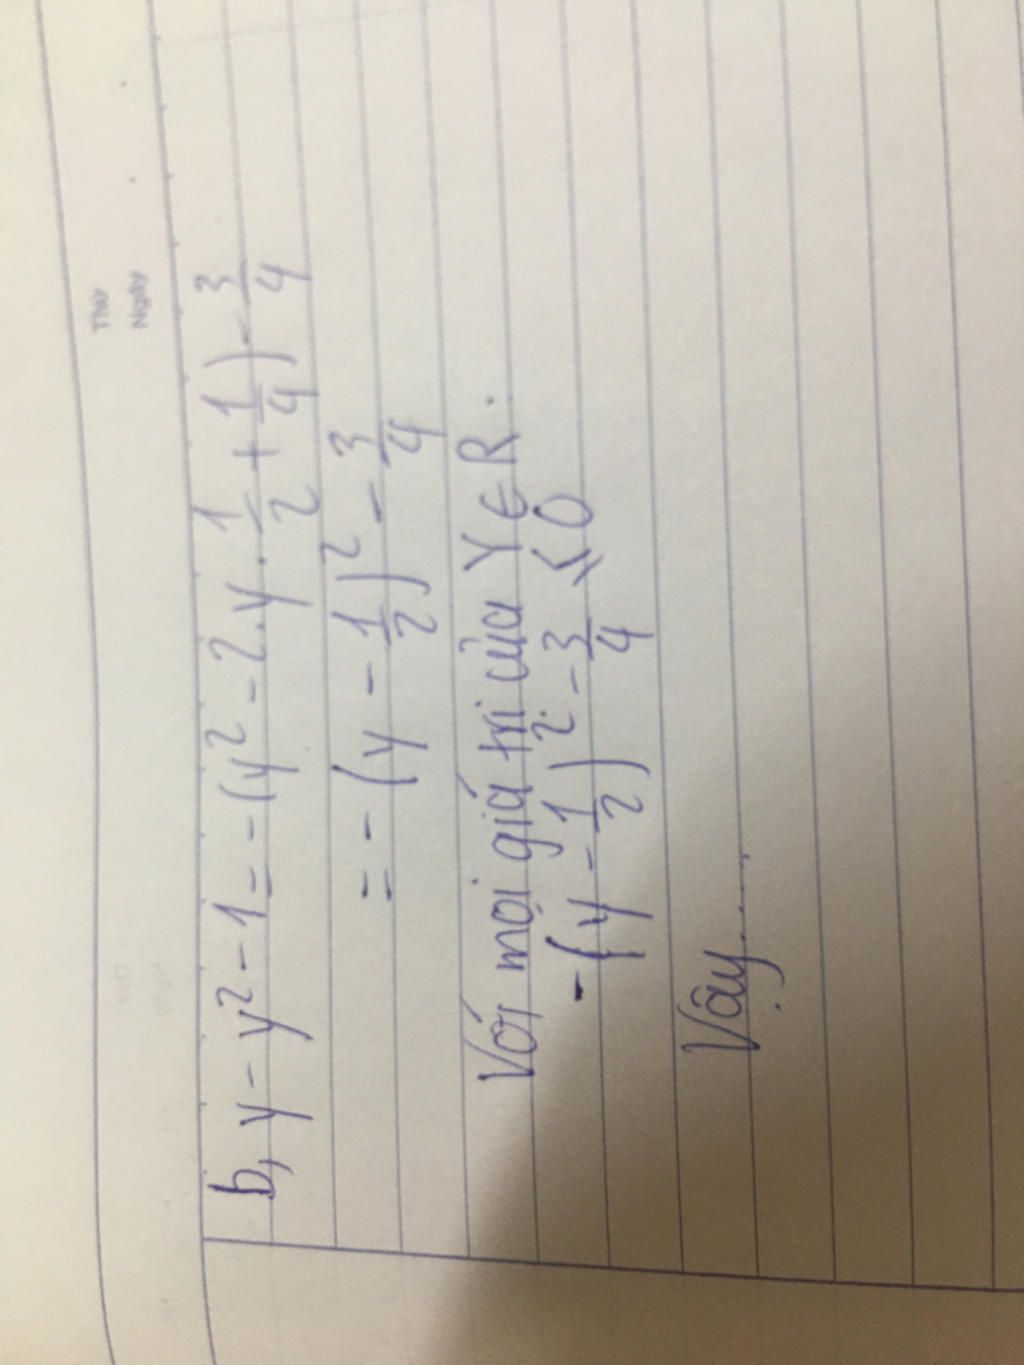 Thứ
Ngày
b, y - y² - 1 = - (y² - 2.y.1/2 + 1/4) - 3/4
= - (y - 1/2)² - 3/4
Với mọi giá trị của Y ∈ R.
- (y - 1/2)² - 3/4 ≤ 0
Vậy.....